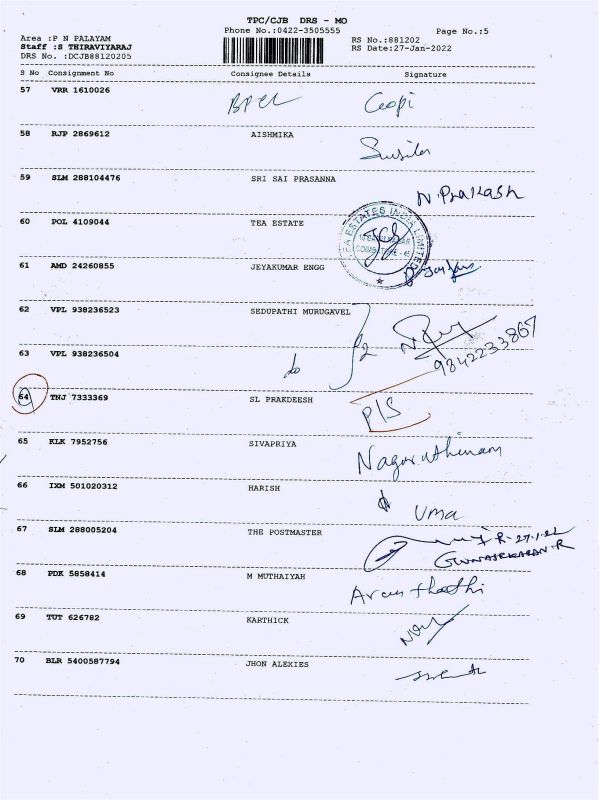 TPC/CJB DRS - MO
Phone No.:0422-3505555 Page No.:5
Area :P N PALAYAM RS No.:881202
Staff :S THIRAVIYARAJ RS Date:27-Jan-2022
DRS No. :DCJB88120205
S No Consignment No Consignee Details Signature
57 VRR 1610026 BPCL Gopi
58 RJP 2869612 AISHMIKA Susila
59 SLM 288104476 SRI SAI PRASANNA N. PRAKASH
60 POL 4109044 TEA ESTATE
TEA ESTATES INDIA LIMITED
61 AMD 24260855 JEYAKUMAR ENGG
62 VPL 938236523 SEDUPATHI MURUGAVEL
9842233867
63 VPL 938236504 do
64 TNJ 7333369 SL PRAKDEESH P/S
65 KLK 7952756 SIVAPRIYA
66 IXM 501020312 HARISH Uma
67 SLM 288005204 THE POSTMASTER
68 PDK 5858414 M MUTHAIYAH
69 TUT 626782 KARTHICK
70 BLR 5400587794 JHON ALEXIES